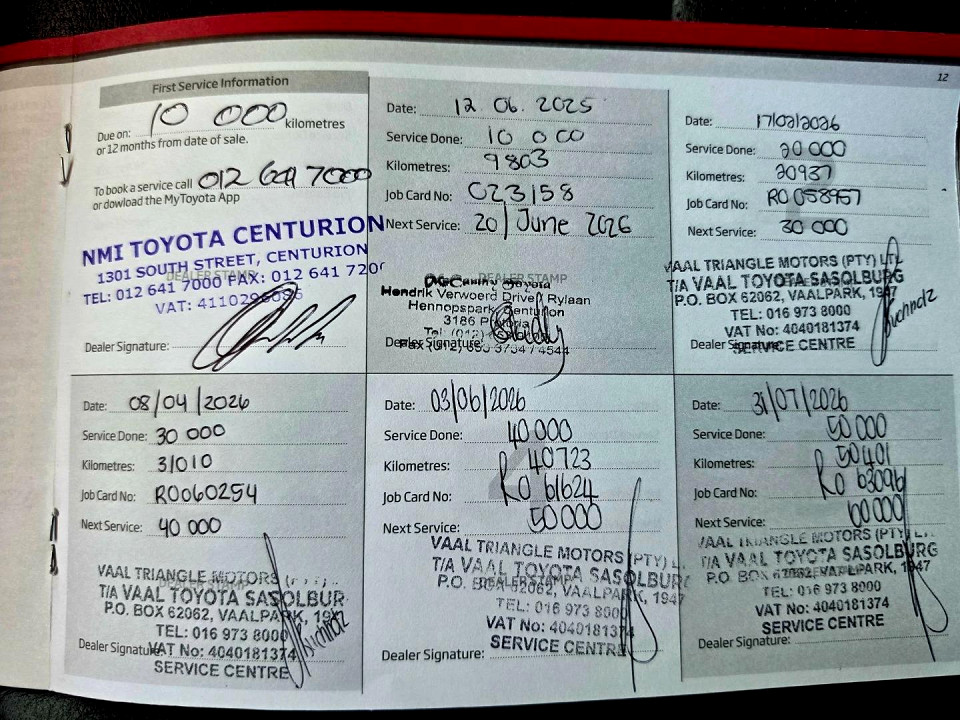 12
First Service Information
Due on: 10 000 kilometres
or 12 months from date of sale.
To book a service call 012 641 7000
or dowload the MyToyota App
NMI TOYOTA CENTURION
1301 SOUTH STREET, CENTURION
DEALER STAMP
TEL: 012 641 7000 FAX: 012 641 720
VAT:
Dealer Signature:
Date: 12 06. 2025
Service Done: 10 000
Kilometres: 9803
Job Card No: C23158
Next Service: 20 June 2026
DEALER STAMP
Hendrik Verwoerd Drive / Rylaan
Hennopspark, Centurion
3186
Tel: (012)
Dealer Signature:
Fax (012) 653 3734 / 4544
Date: 17/02/2026
Service Done: 20 000
Kilometres: 20937
Job Card No: RO 058957
Next Service: 30 000
VAAL TRIANGLE MOTORS (PTY) LTD
T/A VAAL TOYOTA SASOLBURG
P.O. BOX 62062, VAALPARK, 1947
TEL: 016 973 8000
VAT No: 4040181374
Dealer Signature:
SERVICE CENTRE
Date: 08/04/2026
Service Done: 30 000
Kilometres: 31010
Job Card No: RO060254
Next Service: 40 000
VAAL TRIANGLE MOTORS
DEALER STAMP
T/A VAAL TOYOTA SASOLBUR
P.O. BOX 62062, VAALPARK, 19
TEL: 016 973 8000
Dealer Signature:
VAT No: 4040181374
SERVICE CENTRE
Date: 03/06/2026
Service Done: 40 000
Kilometres: 40723
Job Card No: RO 61624
Next Service: 50 000
VAAL TRIANGLE MOTORS (PTY) L
T/A VAAL TOYOTA SASOLBUR
DEALER STAMP
P.O. BOX 62062, VAALPARK, 1947
TEL: 016 973 800
VAT No: 404018137
Dealer Signature:
SERVICE CENTR
Date: 31/07/2026
Service Done: 50 000
Kilometres: 50401
Job Card No: RO 63096
Next Service: 60 000
VAAL TRIANGLE MOTORS (PTY) L
T/A VAAL TOYOTA SASOLBURG
P.O. BOX 62062, VAALPARK, 1947
TEL: 016 973 8000
VAT No: 4040181374
SERVICE CENTRE
Dealer Signature: